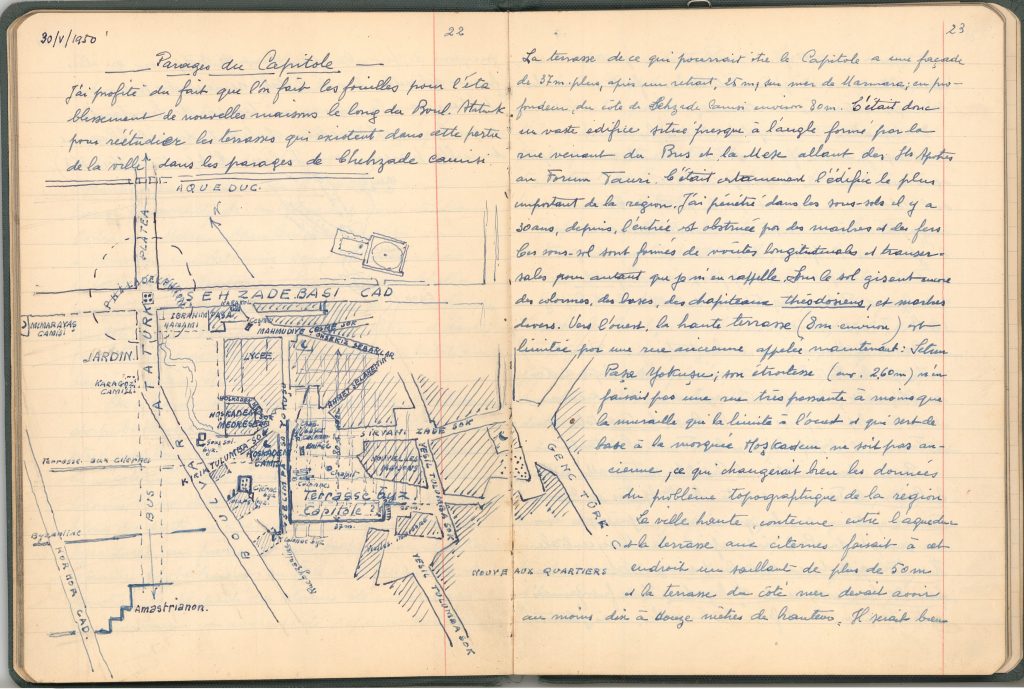 30/V/1950
22
Parages du Capitole
J'ai profité du fait que l'on fait les fouilles pour l'éta
blissement de nouvelles maisons le long du Boul. Ataturk
pour réétudier les terrasses qui existent dans cette partie
de la ville, dans les parages de Chehzade camisi.
AQUEDUC.
PLATEA
PHILADELPHION
SEHZADEBASI CAD
MIMARAYAS CAMISI
IBRAHIM PASA
HAMAMI
MAHMUDIYE ÇESME SOK
ATATÜRK
JARDIN
LYCÉE
AHMET SELAHEDIN
KARAGÖZ CAMISI
HOSKADEM MEDRESESI
SIRVANI ZADE SOK
KIRIK TULUMBA SOK
HOSKADEM CAMISI
NOUVELLES MAISONS
YESIL TULUMBA SOK
GENÇ TÜRK
Terrasse aux Citernes
BULVARI
BOUL
BUS
Chapit.
Colonnes
Citerne byz
Terrasse byz
Capitole?
37 m.
Byzantine
HORHOR CAD.
Colonnes byz
Rue byzantine
YESIL TULUMBA SOK
NOUVEAUX QUARTIERS
Amastrianon.
23
La terrasse de ce qui pourrait être le Capitole a une façade
de 37m. plus, après un retrait, 25m, sur mer de Marmara; en pro-
fondeur, du côté de Sehzade Camisi environ 80m. C'était donc
un vaste edifice situé presque à l'angle formé par la
rue venant du Bus et la Mese allant des Sts Apôtres
au Forum Tauri. C'était certainement l'édifice le plus
important de la region. J'ai pénétré dans les sous-sols il y a
30 ans, depuis, l'entrée est obstruée par des marbres et des fers
Ces sous-sol sont formés de voûtes longitudinales et transver-
sales pour autant que je m'en rappelle. Sur le sol gisent encore
des colonnes, des bases, des chapiteaux théodosiens, et marbres
divers. Vers l'ouest, la haute terrasse (8m environ) est
limitée par une rue ancienne appelée maintenant: Selim
Paşa Yokusu; son étroitesse (env. 2,60m) n'en
faisait pas une rue très passante à moins que
la muraille qui la limite à l'ouest et qui sert de
base à la mosquée Hoşkadem ne soit pas an-
cienne, ce qui changerait bien les données
du problème topographique de la région
La ville haute, contenue entre l'aqueduc
et la terrasse aux citernes faisait à cet
endroit un saillant de plus de 50m
et la terrasse du côté mer devait avoir
au moins dix à douze mètres de hauteur. Il serait bien